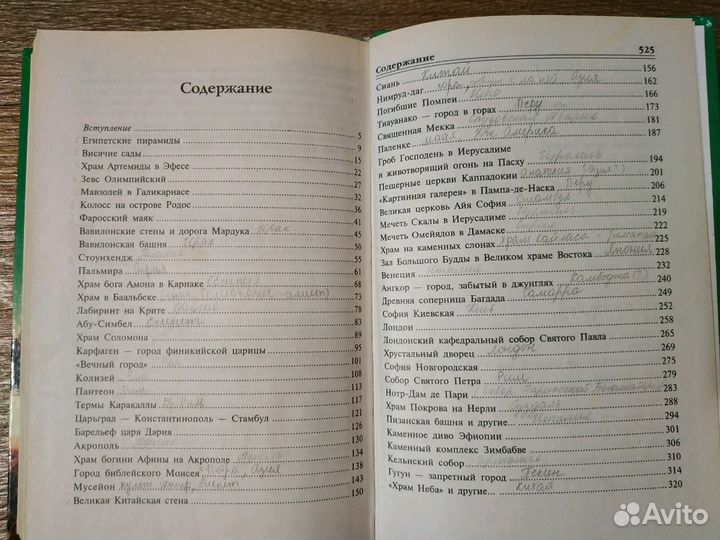 Содержание
Вступление 5
Египетские пирамиды 9
Висячие сады 15
Храм Артемиды в Эфесе 22
Зевс Олимпийский 27
Мавзолей в Галикарнасе 32
Колосс на острове Родос 38
Фаросский маяк 41
Вавилонские стены и дорога Мардука Ирак 45
Вавилонская башня Ирак 50
Стоунхендж 54
Пальмира Сирия 58
Храм бога Амона в Карнаке 68
Храм в Баальбеке 73
Лабиринт на Крите 78
Абу-Симбел Египет 83
Храм Соломона 88
Карфаген — город финикийской царицы 95
«Вечный город» 101
Колизей 108
Пантеон 113
Термы Каракаллы Рим 117
Царьград — Константинополь — Стамбул 121
Барельеф царя Дария 130
Акрополь 134
Храм богини Афины на Акрополе 138
Город библейского Моисея 143
Мусейон 147
Великая Китайская стена 150
Содержание 525
Сиань Китай 156
Нимруд-даг 162
Погибшие Помпеи 166
Тиауанако — город в горах Перу 173
Священная Мекка 181
Паленке 187
Гроб Господень в Иерусалиме
и животворящий огонь на Пасху 194
Пещерные церкви Каппадокии 201
«Картинная галерея» в Пампа-де-Наска Перу 206
Великая церковь Айя София Стамбул 214
Мечеть Скалы в Иерусалиме 219
Мечеть Омейядов в Дамаске 222
Храм на каменных слонах 225
Зал Большого Будды в Великом храме Востока Япония 228
Венеция Италия 232
Ангкор — город, забытый в джунглях Камбоджа 240
Древняя соперница Багдада Самарра 249
София Киевская 252
Лондон 258
Лондонский кафедральный собор Святого Павла 265
Хрустальный дворец Лондон 269
София Новгородская 273
Собор Святого Петра Рим 279
Нотр-Дам де Пари 283
Храм Покрова на Нерли 288
Пизанская башня и другие 294
Каменное диво Эфиопии 301
Каменный комплекс Зимбабве 307
Кельнский собор 310
Гугун — запретный город Пекин 314
«Храм Неба» и другие Китай 320
Avito